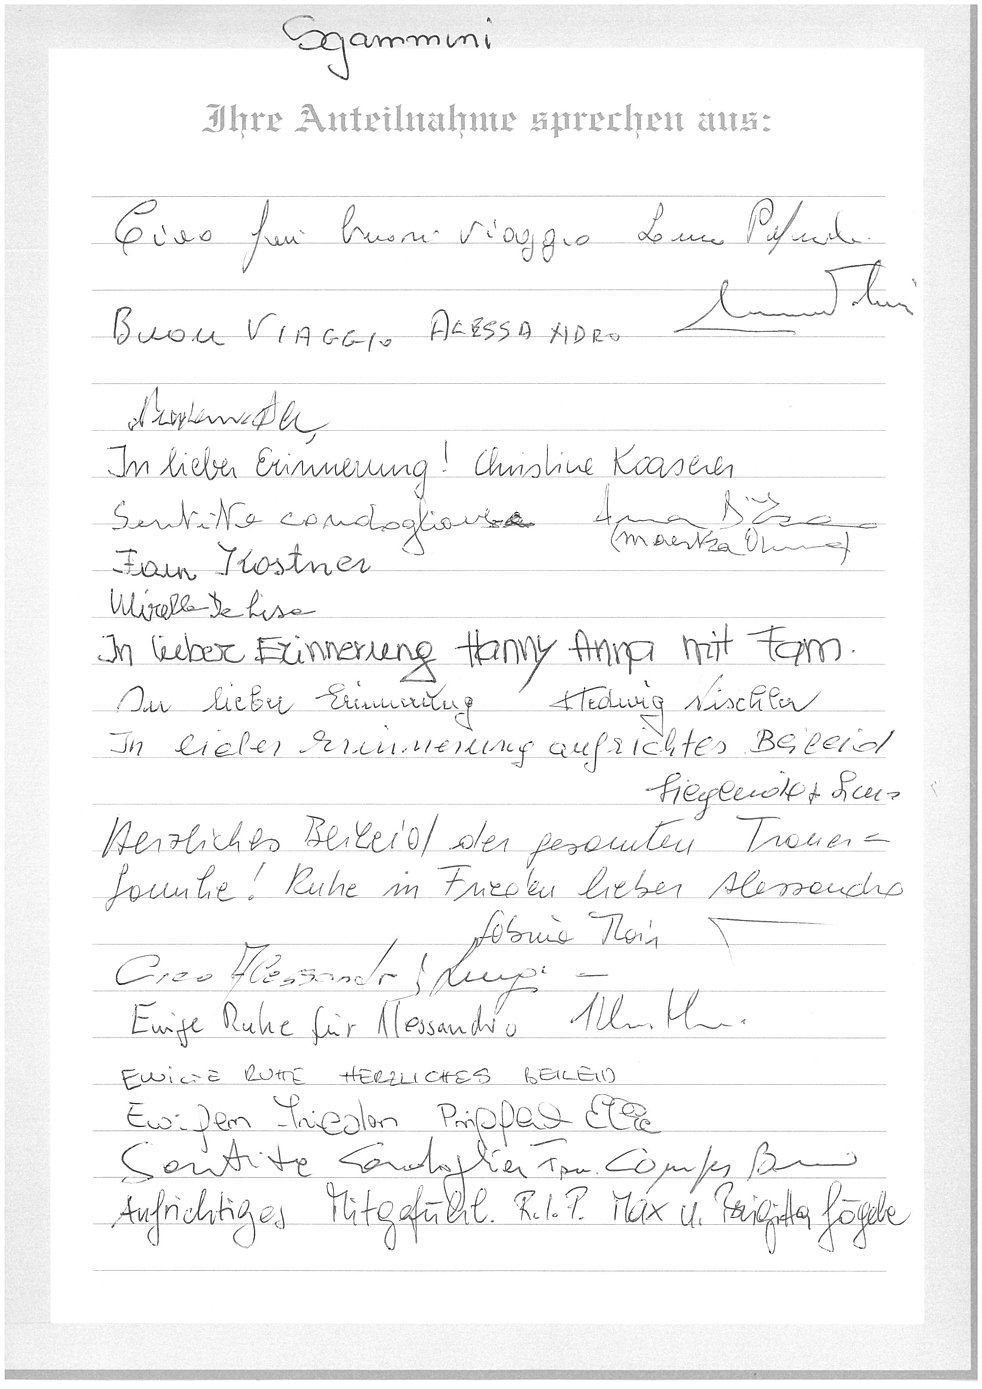 Sgammini
Ihre Anteilnahme sprechen aus:
Ciao buon viaggio
Buon VIAGGIO ALESSANDRO
In lieber Erinnerung! Christine Kaaserer
Sentite condoglianze Anna
(maestra
Fam Kostner
Mirella De Lisa
In lieber Erinnerung Hanny Anna mit Fam.
In lieber Erinnerung Hedwig Nischler
In lieber Erinnerung aufrichtes Beileid
Herzliches Beileid der gesamten Trauer=
familie! Ruhe in Frieden lieber Alessandro
Ciao Alessandro! Luigi
Ewige Ruhe für Alessandro
EWIGE RUHE HERZLICHES BEILEID
Ewigen Frieden
Sentite Fam.
Aufrichtiges Mitgefühl. R.I.P. Max u. Brigitta